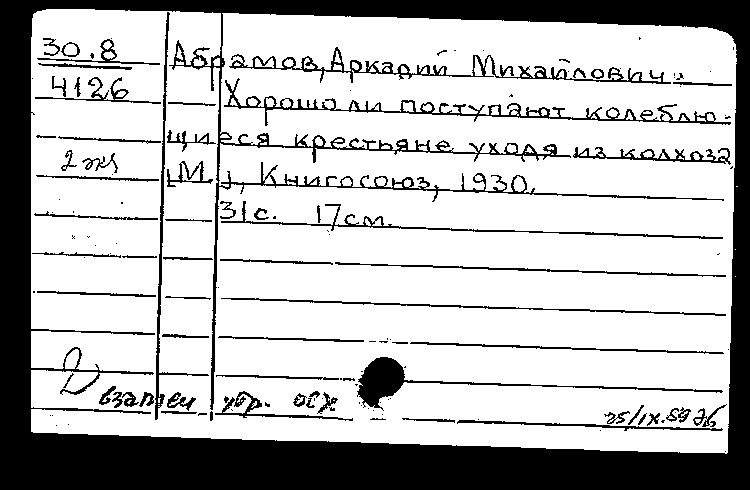 30.8
4126
2 экз
Абрамов, Аркадий Михайлович.
Хорошо ли поступают колеблю-
щиеся крестьяне уходя из колхоза
[М.], Книгосоюз, 1930.
31с. 17см.
2
взамен убр. осх
25/IX.59